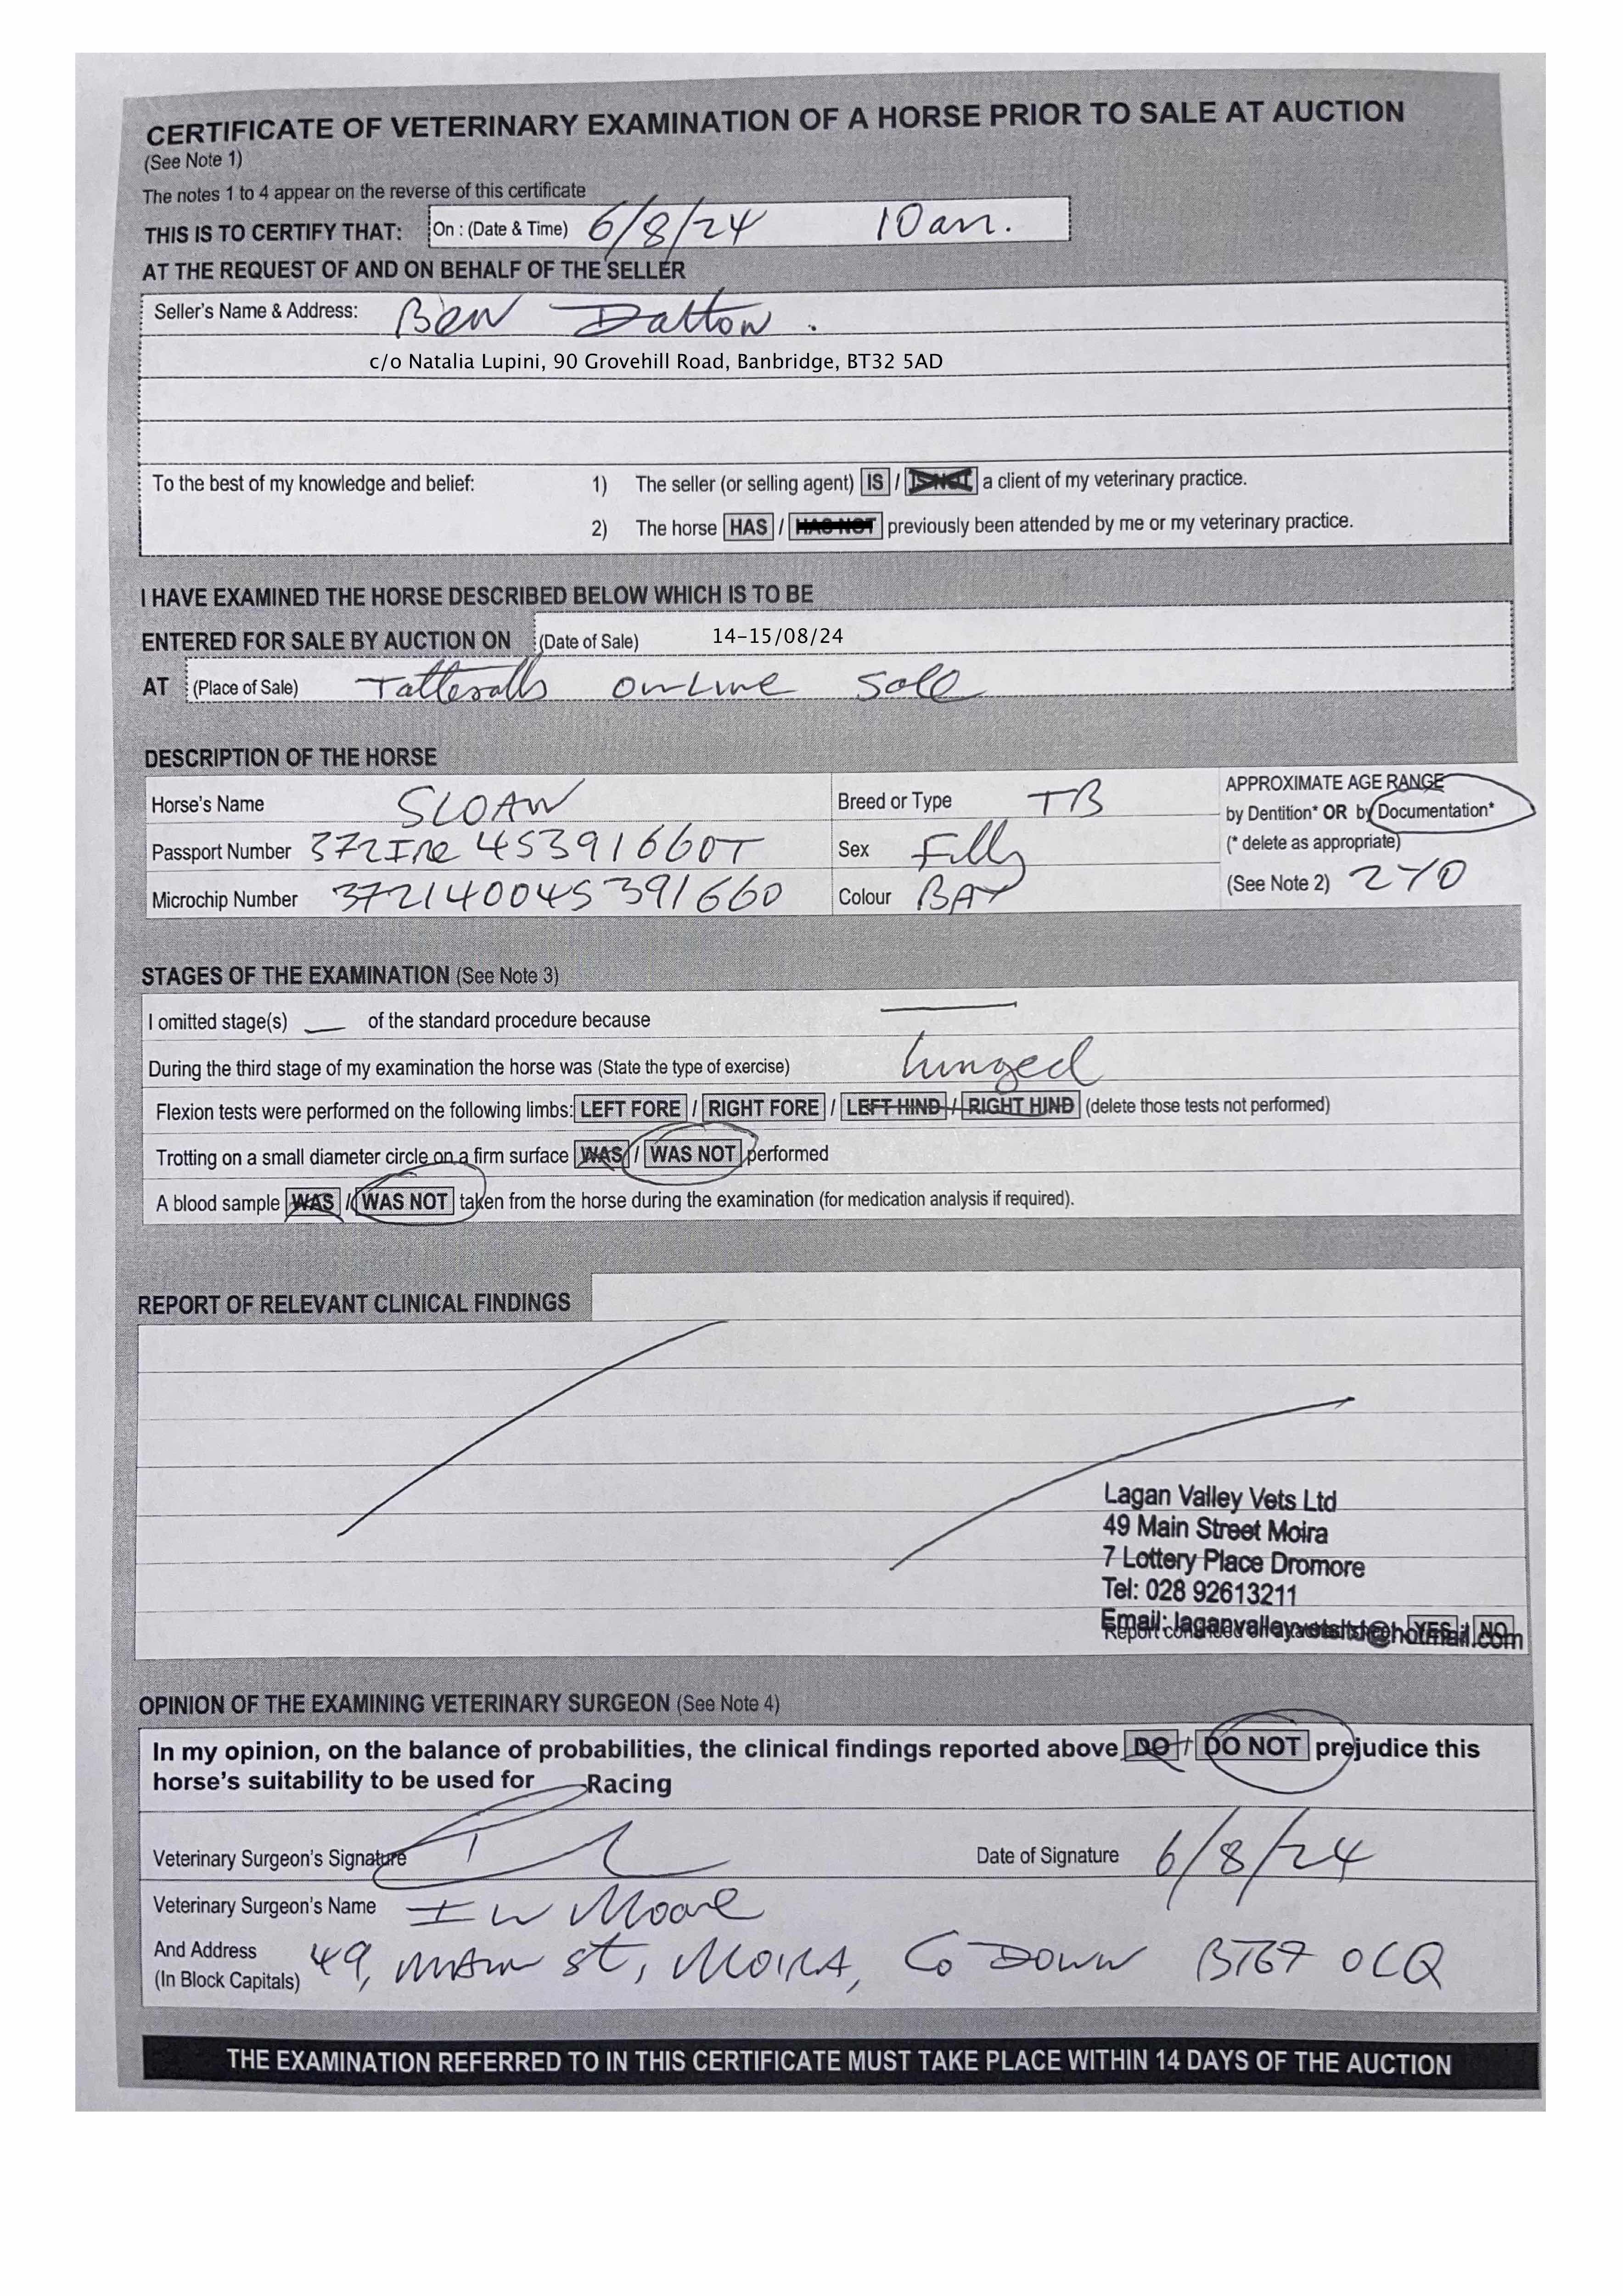 CERTIFICATE OF VETERINARY EXAMINATION OF A HORSE PRIOR TO SALE AT AUCTION
(See Note 1)
The notes 1 to 4 appear on the reverse of this certificate
THIS IS TO CERTIFY THAT: On : (Date & Time) 6/8/24 10am.
AT THE REQUEST OF AND ON BEHALF OF THE SELLER
Seller's Name & Address: Ben Dalton.
c/o Natalia Lupini, 90 Grovehill Road, Banbridge, BT32 5AD
To the best of my knowledge and belief: 1) The seller (or selling agent) IS / IS NOT a client of my veterinary practice.
2) The horse HAS / HAS NOT previously been attended by me or my veterinary practice.
I HAVE EXAMINED THE HORSE DESCRIBED BELOW WHICH IS TO BE
ENTERED FOR SALE BY AUCTION ON (Date of Sale) 14-15/08/24
AT (Place of Sale) Tattersalls OnLine Sale
DESCRIPTION OF THE HORSE
Horse's Name SLOAN Breed or Type TB
APPROXIMATE AGE RANGE
by Dentition* OR by Documentation*
Passport Number 372Ire 45391660T Sex Filly
(* delete as appropriate)
Microchip Number 372140045391660 Colour BAY
(See Note 2) 2YO
STAGES OF THE EXAMINATION (See Note 3)
I omitted stage(s) — of the standard procedure because —
During the third stage of my examination the horse was (State the type of exercise) lunged
Flexion tests were performed on the following limbs: LEFT FORE / RIGHT FORE / LEFT HIND / RIGHT HIND (delete those tests not performed)
Trotting on a small diameter circle on a firm surface WAS / WAS NOT performed
A blood sample WAS / WAS NOT taken from the horse during the examination (for medication analysis if required).
REPORT OF RELEVANT CLINICAL FINDINGS
Lagan Valley Vets Ltd
49 Main Street Moira
7 Lottery Place Dromore
Tel: 028 92613211
Email: laganvalleyvetsltd@hotmail.com
YES / NO
OPINION OF THE EXAMINING VETERINARY SURGEON (See Note 4)
In my opinion, on the balance of probabilities, the clinical findings reported above DO / DO NOT prejudice this
horse's suitability to be used for Racing
Veterinary Surgeon's Signature Date of Signature 6/8/24
Veterinary Surgeon's Name I W Moore
And Address 49, MAIN St, MOIRA, Co DOWN BT67 0LQ
(In Block Capitals)
THE EXAMINATION REFERRED TO IN THIS CERTIFICATE MUST TAKE PLACE WITHIN 14 DAYS OF THE AUCTION